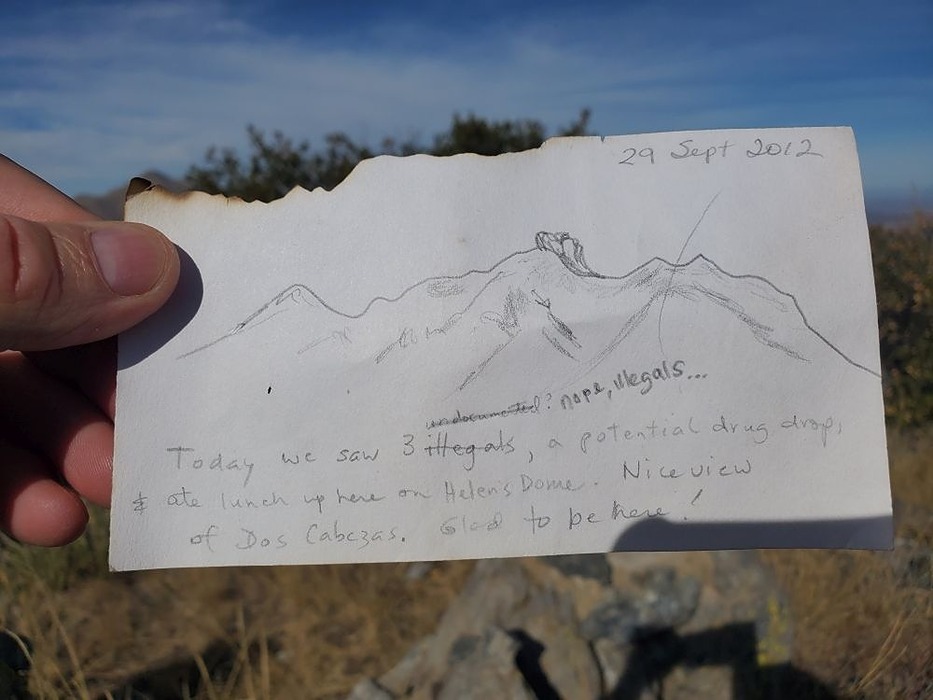 29 Sept 2012
undocumented? nope, illegals...
Today we saw 3 illegals, a potential drug drop,
& ate lunch up here on Helen's Dome. Nice view
of Dos Cabezas. Glad to be here!